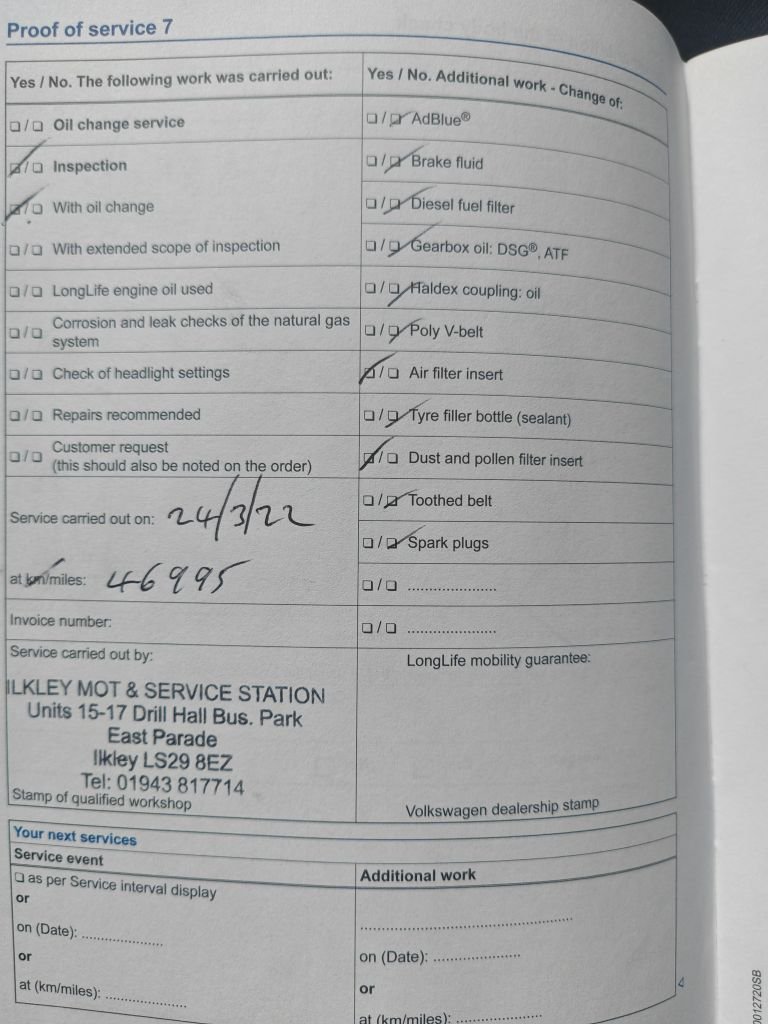 Proof of service 7
Yes / No. The following work was carried out:
☐ / ☐ Oil change service
☑ / ☐ Inspection
☑ / ☐ With oil change
☐ / ☐ With extended scope of inspection
☐ / ☐ LongLife engine oil used
☐ / ☐ Corrosion and leak checks of the natural gas
system
☐ / ☐ Check of headlight settings
☐ / ☐ Repairs recommended
☐ / ☐ Customer request
(this should also be noted on the order)
Service carried out on: 24/3/22
at km/miles: 46995
Invoice number:
Service carried out by:
ILKLEY MOT & SERVICE STATION
Units 15-17 Drill Hall Bus. Park
East Parade
Ilkley LS29 8EZ
Tel: 01943 817714
Stamp of qualified workshop
Yes / No. Additional work - Change of:
☐ / ☑ AdBlue®
☐ / ☑ Brake fluid
☐ / ☑ Diesel fuel filter
☐ / ☑ Gearbox oil: DSG®, ATF
☐ / ☑ Haldex coupling: oil
☐ / ☑ Poly V-belt
☑ / ☐ Air filter insert
☐ / ☑ Tyre filler bottle (sealant)
☑ / ☐ Dust and pollen filter insert
☐ / ☑ Toothed belt
☐ / ☑ Spark plugs
☐ / ☐ .....................
☐ / ☐ .....................
LongLife mobility guarantee:
Volkswagen dealership stamp
Your next services
Service event
☐ as per Service interval display
or
on (Date): ...................
or
at (km/miles): ...................
Additional work
..................................................
on (Date): ....................
or
at (km/miles): ....................
4
0012720SB